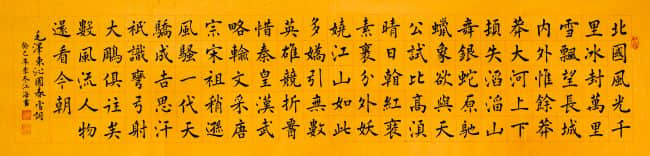 北國風光千
里冰封萬里
雪飄望長城
內外惟餘莽
莽大河上下
頓失滔滔山
舞銀蛇原馳
蠟象欲與天
公試比高須
晴日紅
素裹分外妖
嬈江山如此
多嬌引無數
英雄競折
惜秦皇漢武
略輸文采唐
宗宋祖稍遜
風騷一代天
驕成吉思汗
祇識彎弓射
大鵰俱往矣
數風流人物
還看今朝
毛澤東沁園春雪詞
癸巳年季冬江海書